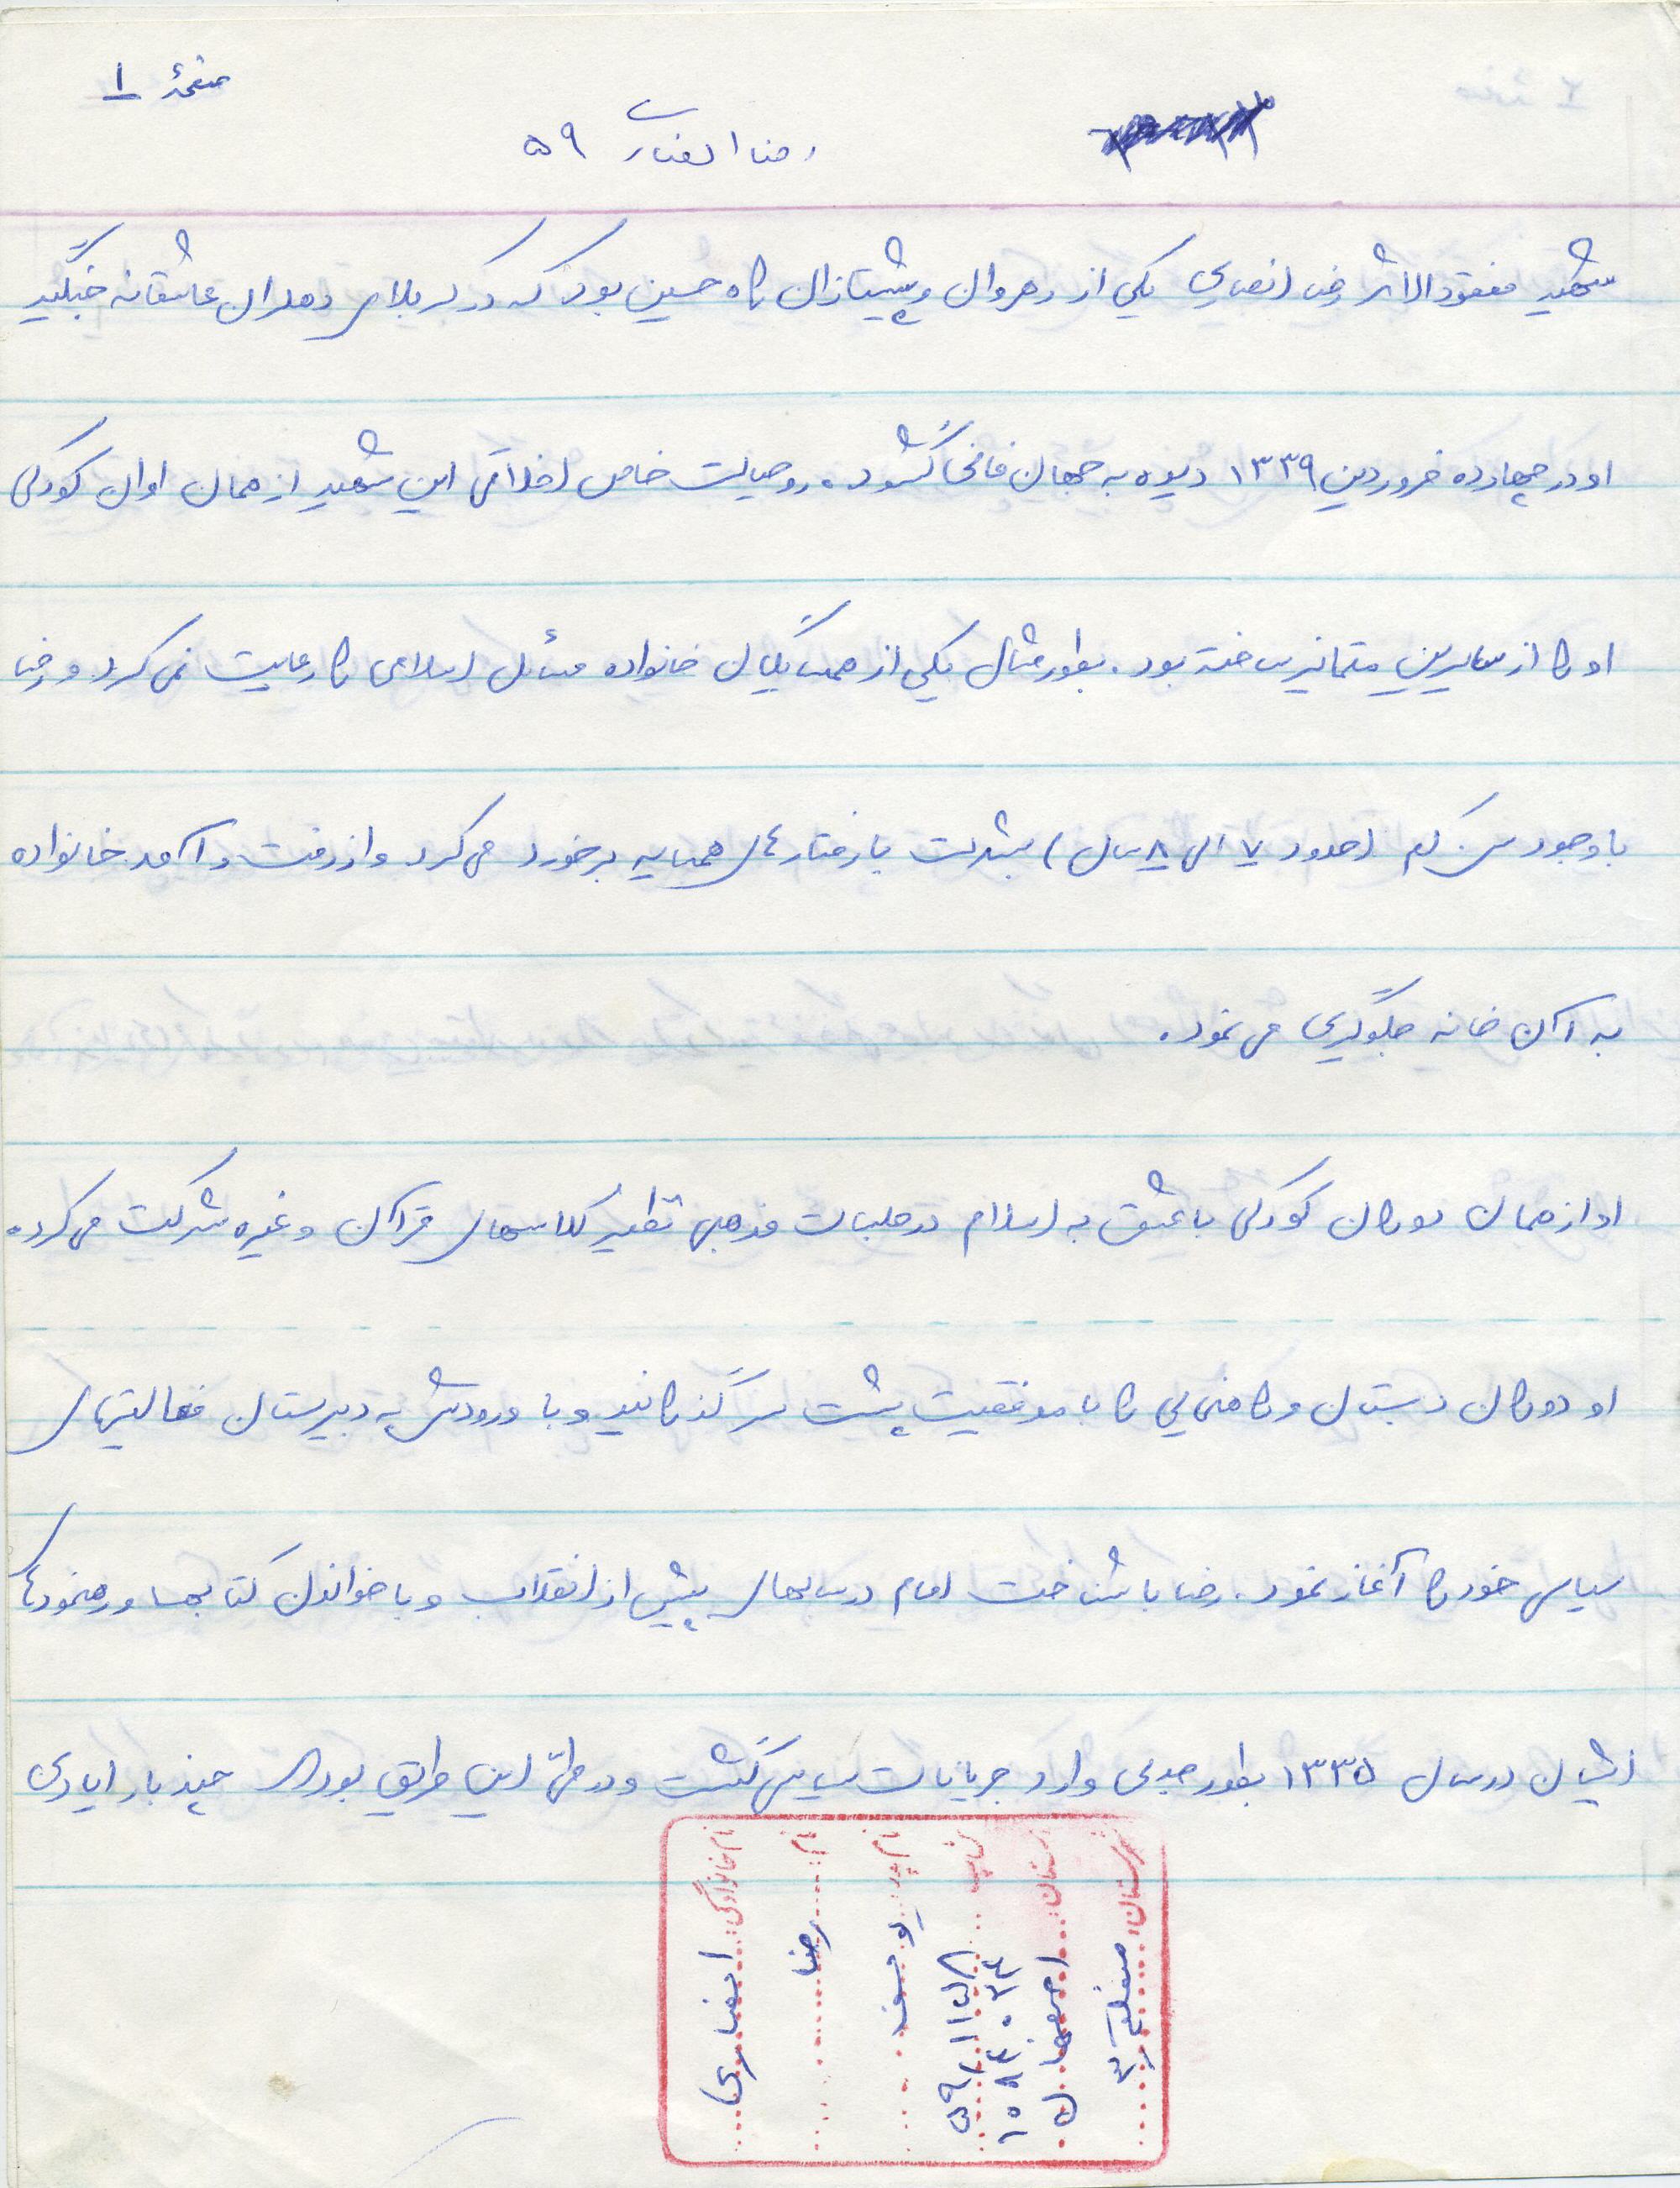 صفحهٔ ۱
رضا انصاری ۵۹
شهید مفقودالاثر رضا انصاری یکی از رهروان و پیشتازان راه حسین بود که در کربلای دهلران عاشقانه جنگید
او در چهارده فروردین ۱۳۳۹ دیده به جهان فانی گشود. روحیات خاص اخلاقی این شهید از همان اوان کودکی
او را از سایرین متمایز ساخته بود. بطور مثال یکی از همسایگان خانواده مسائل اسلامی را رعایت نمی‌کرد و رضا
با وجود سن کم (حدود ۷ الی ۸ سال) بشدت با رفتارهای همسایه برخورد می‌کرد و از رفت و آمد خانواده
به آن خانه جلوگیری می‌نمود.
او از همان دوران کودکی با عشق به اسلام در جلسات مذهبی نظیر کلاسهای قرآن و غیره شرکت می‌کرد.
او دوران دبستان و راهنمایی را با موفقیت پشت سر گذرانید و با ورودش به دبیرستان فعالیتهای
سیاسی خود را آغاز نمود. رضا با شناخت امام در سالهای پیش از انقلاب و با خواندن کتابها و رهنمودهای
ایشان در سال ۱۳۳۵ بطور جدی وارد جریانات سیاسی گشت و در طیّ این طریق بود که چند بار ایادی
نام خانوادگی: انصاری
نام: رضا
نام پدر: یوسف
استان: اصفهان